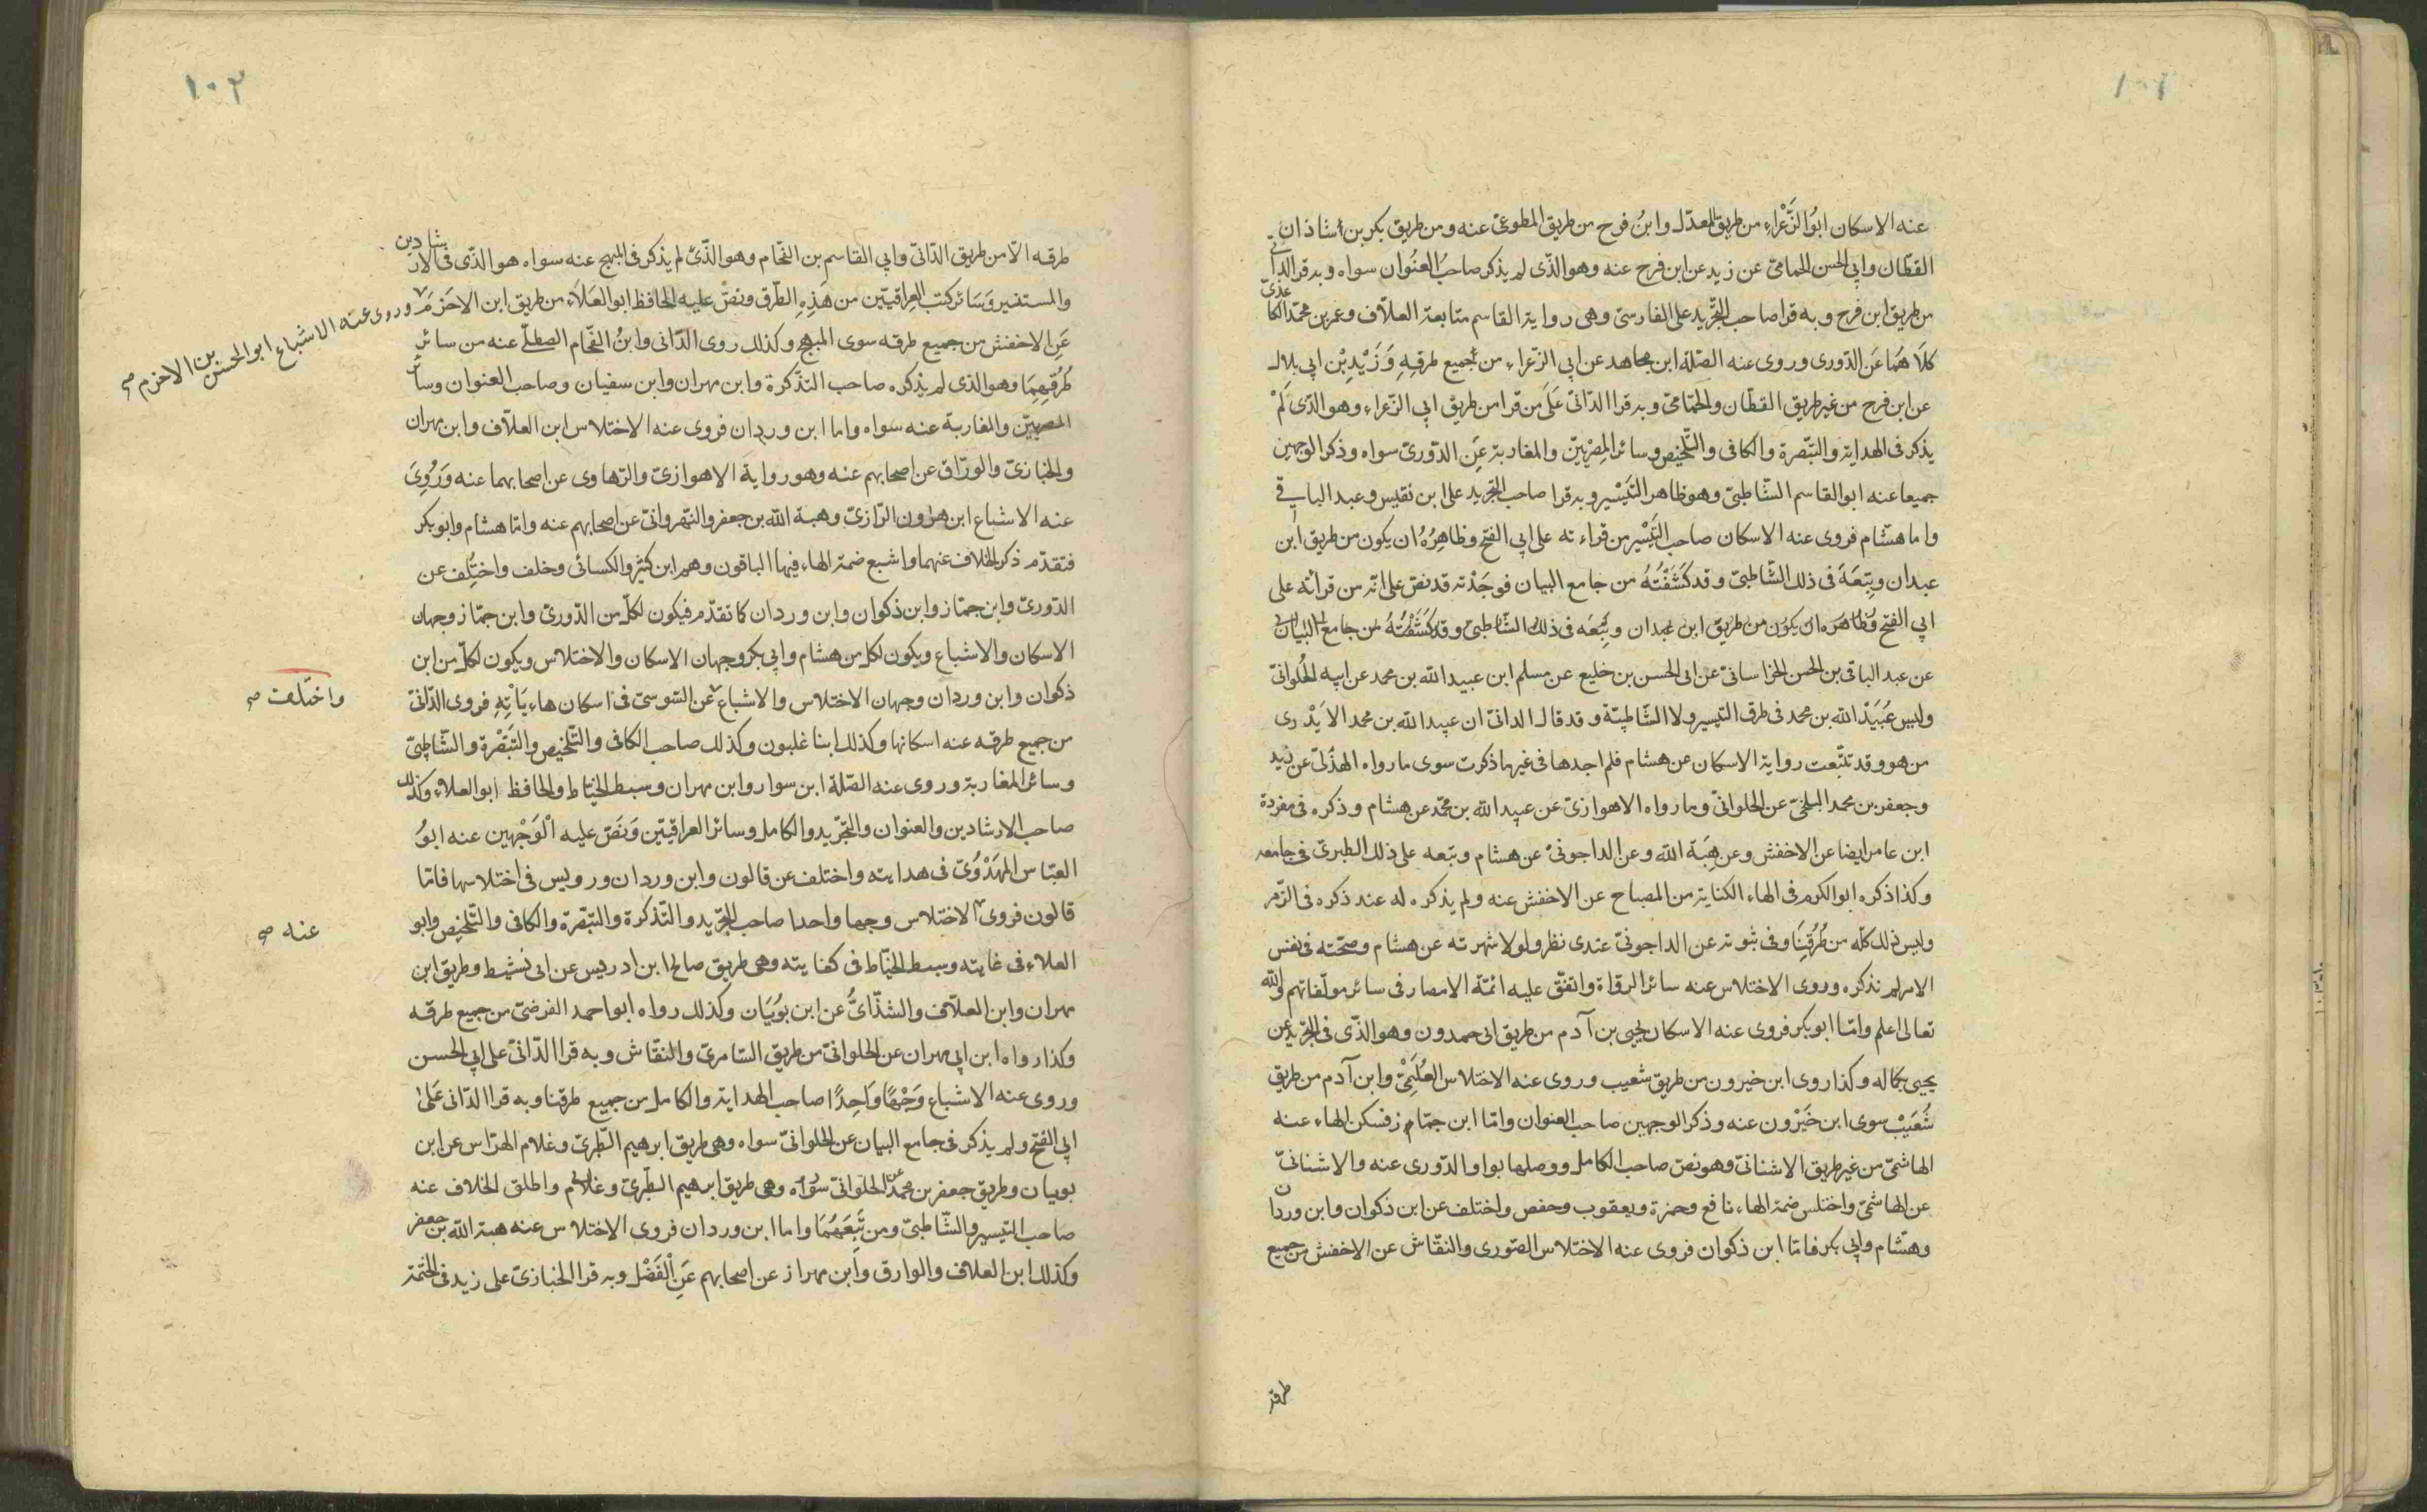 ١٠١
عنه الاسكان ابُو الزَّعْراءِ من طريق المعدّل وابنُ فرح من طريق المطوعىّ عنه ومن طريق بكر بن شاذان
القطّان وابي الحسن الحمامىّ عن زيد عن ابن فرح عنه وهو الذّى لم يذكر صاحبُ العنُوان سواه وبه قرا الدانى
من طريق ابن فرح وبه قرا صاحب التجّريد على الفارسىّ وهى رواية القاسم متابعة العلاّف وعمر بن محمّد الكاغذىّ
كلاَهُمَا عَن الدّورى وروى عنه الصّلة ابن مجاهد عن ابي الزّعراء من جميع طرقِهِ وَزَيْدِ بْن ابي بلال
عن ابن فرح من غير طريق القطّان والحمّامىّ وبه قرا الدّانىّ عَلَى من قرا من طريق ابي الزّعراء وهو الذّى لَمْ
يذكر فى الهداية والتّبصرة والكافى والتّلخيص وسائر المِصْريّين والمغاربة عَنِ الدّورىّ سواه وذكر الوجهين
جميعا عنه ابو القاسم الشّاطبىّ وهو ظاهر التّيسْير وبه قرا صاحب التجّريد على ابن نفيس وعبد الباقى
واما هشّام فروى عنه الاسكان صاحب التَّيْسْير من قراءته على ابي الفتح وظاهِرُهُ ان يكون من طريق ابن
عبدان وتبِعَهَ فى ذلك الشّاطبىّ وقد كَشَفْتُهُ من جامع البيان فوجَدْته قد نصّ على انّه من قرائه على
ابي الفتح وظاهره ان يكون من طريق ابن عبدان وتَبِعَه فى ذلك الشّاطبىّ وقد كَشَفْتُهُ من جامع البيان
عن عبد الباقى بن الحسن الخراسانىّ عن ابى الحسن بن خليع عن مسلم ابن عبيد الله بن محمد عن ابيه الحُلوانىّ
وليس عُبَيَدّ الله بن محمد فى طرق التيسير ولا الشّاطبيّة وقد قال الدانىّ ان عبيد الله بن محمد لا يَدْرى
من هو وقد تتبّعت رواية الاسكان عن هشام فلم اجدها فى غيرها ذكرت سوى ما رواه الهذُلىّ عن زيد
وجعفر بن محمد البلخىّ عن الحلوانىّ وما رواه الاهوازىّ عن عبيد الله بن محمّد عن هشام وذكره فى مفردة
ابن عامر ايضا عن الاخفش وعن هِبَة الله وعن الداجونىّ عن هشام وتبعه على ذلك الطبرىّ فى جامعه
وكذا ذكره ابو الكرم فى الهاء الكناية من المصباح عن الاخفش عنه ولم يذكره له عند ذكره فى الزّمر
وليس ذلك كلّه من طُرُقِنَا وفى ثبوته عن الداجونىّ عندى نظر ولولا شهرته عن هشام وصحّته فى نفس
الامر لم نذكره وروى الاختلاس عنه سائر الرواة واتفّق عليه ائمّة الامصار فى سائر مولّفاتهم والله
تعالى اعلم وامّا ابو بكر فروى عنه الاسكان يحيى بن آدم من طريق ابى حمدون وهو الذّى فى التجّريد عن
يحيى بكماله وكذا روى ابن خيرون من طريق شعيب وروى عنه الاختلاس العُلَيَمْىّ وابن آدم من طريق
شُعَيَبْ سوى ابن خَيْرون عنه وذكر الوجهين صاحب العنوان وامّا ابن جمّاز فسكن الهاء عنه
الهاشمىّ من غير طريق الاشنانىّ وهو نصّ صاحب الكامل ووصلها بواو الدّورى عنه والاشنانىّ
عن الهاشمىّ واختلس ضمة الهاء نافع وحمزة ويعقوب وحفص واختلف عن ابن ذكوان وابن وردان
وهشّام وابي بكر فامّا ابن ذكوان فروى عنه الاختلاس الصّورى والنقّاش عن الاخفش من جميع
طرقه
١٠٢
طرقه الاّ من طريق الدّانىّ وابي القاسم بن الفحّام وهو الذّىّ لم يذكر فى المبهج عنه سواه هو الذّى فى الارشادين
والمستنير وَسَائر كتب العِراقييّن من هَذِهِ الطّرق ونصّ عليه الحافظ ابو العَلاَء من طريق ابن الاخرم
وروى عنه الاشباع ابو الحسن بن الاخرم صح
عَنِ الاخفش من جميع طرقه سوى المبهج وكذلك روى الدّانى وابنُ الفحّام الصطلّى عنه من سائر
طُرُقِهِمَا وهو الذى لم يذكره صاحب التذّكرة وابن مهران وابن سفيان وصاحب العنوان وسائر
المصريّين والمغاربة عنه سواه واما ابن وردان فروى عنه الاختلاس ابن العلاّف وابن مهران
والخبازىّ والورّاق عن اصحابهم عنه وهو رواية الاهوازىّ والرّهاوى عن اصحابهما عنه وَرَوُىَ
عنه الاشباع ابن هرون الرّازىّ وهبة الله بن جعفر والنّهروانىّ عن اصحابهم عنه وامّا هشام وابو بكر
فتقدّم ذكر الخلاف عنهما واشبع ضمة الهاء فيها الباقون وهم ابن كثير والكسائى وخلف واختِلُف عن
الدّورىّ وابن جمّاز وابن ذكوان وابن وردان كما تقدّم فيكون لكلّ من الدّورىّ وابن جمّاز وجهان
الاسكان والاشباع ويكون لكل من هشام وابي بكر وجهان الاسكان والاختلاس ويكون لكلّ من ابن
ذكوان وابن وردان وجهان الاختلاس والاشباع عن السّوسىّ فى اسكان هاء يَاْتِهِ فروى الدّانىّ
واختلف صح
من جميع طرقه عنه اسكانها وكذلك ابنا غلبون وكذلك صاحب الكافى والتّلخيص والتَّبَصْرة والشّاطبىّ
وسائر المغاربة وروى عنه الصّلة ابن سوار وابن مهران وسبط الخيّاط والحافظ ابو العلاء وكذلك
صاحب الارشادين والعنوان والتجّريد والكامل وسائر العراقييّن وَنَصّ عليه الْوَجْهين عنه ابوُ
العبّاس المهَدْوَىّ فى هدايته واختلف عن قالون وابن وردان ورويس فى اختلاسها فامّا
قالون فروى الاختلاس وجها واحدا صاحب التجّريد والتّذكرة والتّبصّرة والكافى والتّلخيص وابو
عنه صح
العلاء فى غايته وسبط الخيّاط فى كفايته وهى طريق صالح ابن ادريس عن ابى نشيط وطريق ابن
مهران وابن العلاّف والشذّائىُّ عن ابن بوُيَان وكذلك رواه ابو احمد الفرضىّ من جميع طرقه
وكذا رواه ابن ابي مهران عن الحلوانىّ من طريق السّامرىّ والنقّاش وبه قرا الدّانىّ على ابي الحسن
وروى عنه الاشباع وَجْهًا وَاحِدًا صاحب الهداية والكامل من جميع طرقنا وبه قرا الدّانى عَلىٰ
ابي الفتح ولم يذكر فى جامع البيان عن الحلوانىّ سواه وهى طريق ابرهيم الطّبرىّ وغلام الهرّاس عن ابن
بويان وطريق جعفر بن محمدّ الحلوانىّ سواه وهى طريق ابرهيم الطّبرىّ وغلام واطلق الخلاف عنه
صاحب التيسير والشّاطبىّ ومن تَبِعَهُمَا واما ابن وردان فروى الاختلاس عنه هبة الله بن جعفر
وكذلك ابن العلاف والوارق وابن مهراز عن اصحابهم عَنِ الْفَضْل وبه قرا الخبازىّ على زيد فى الختمة